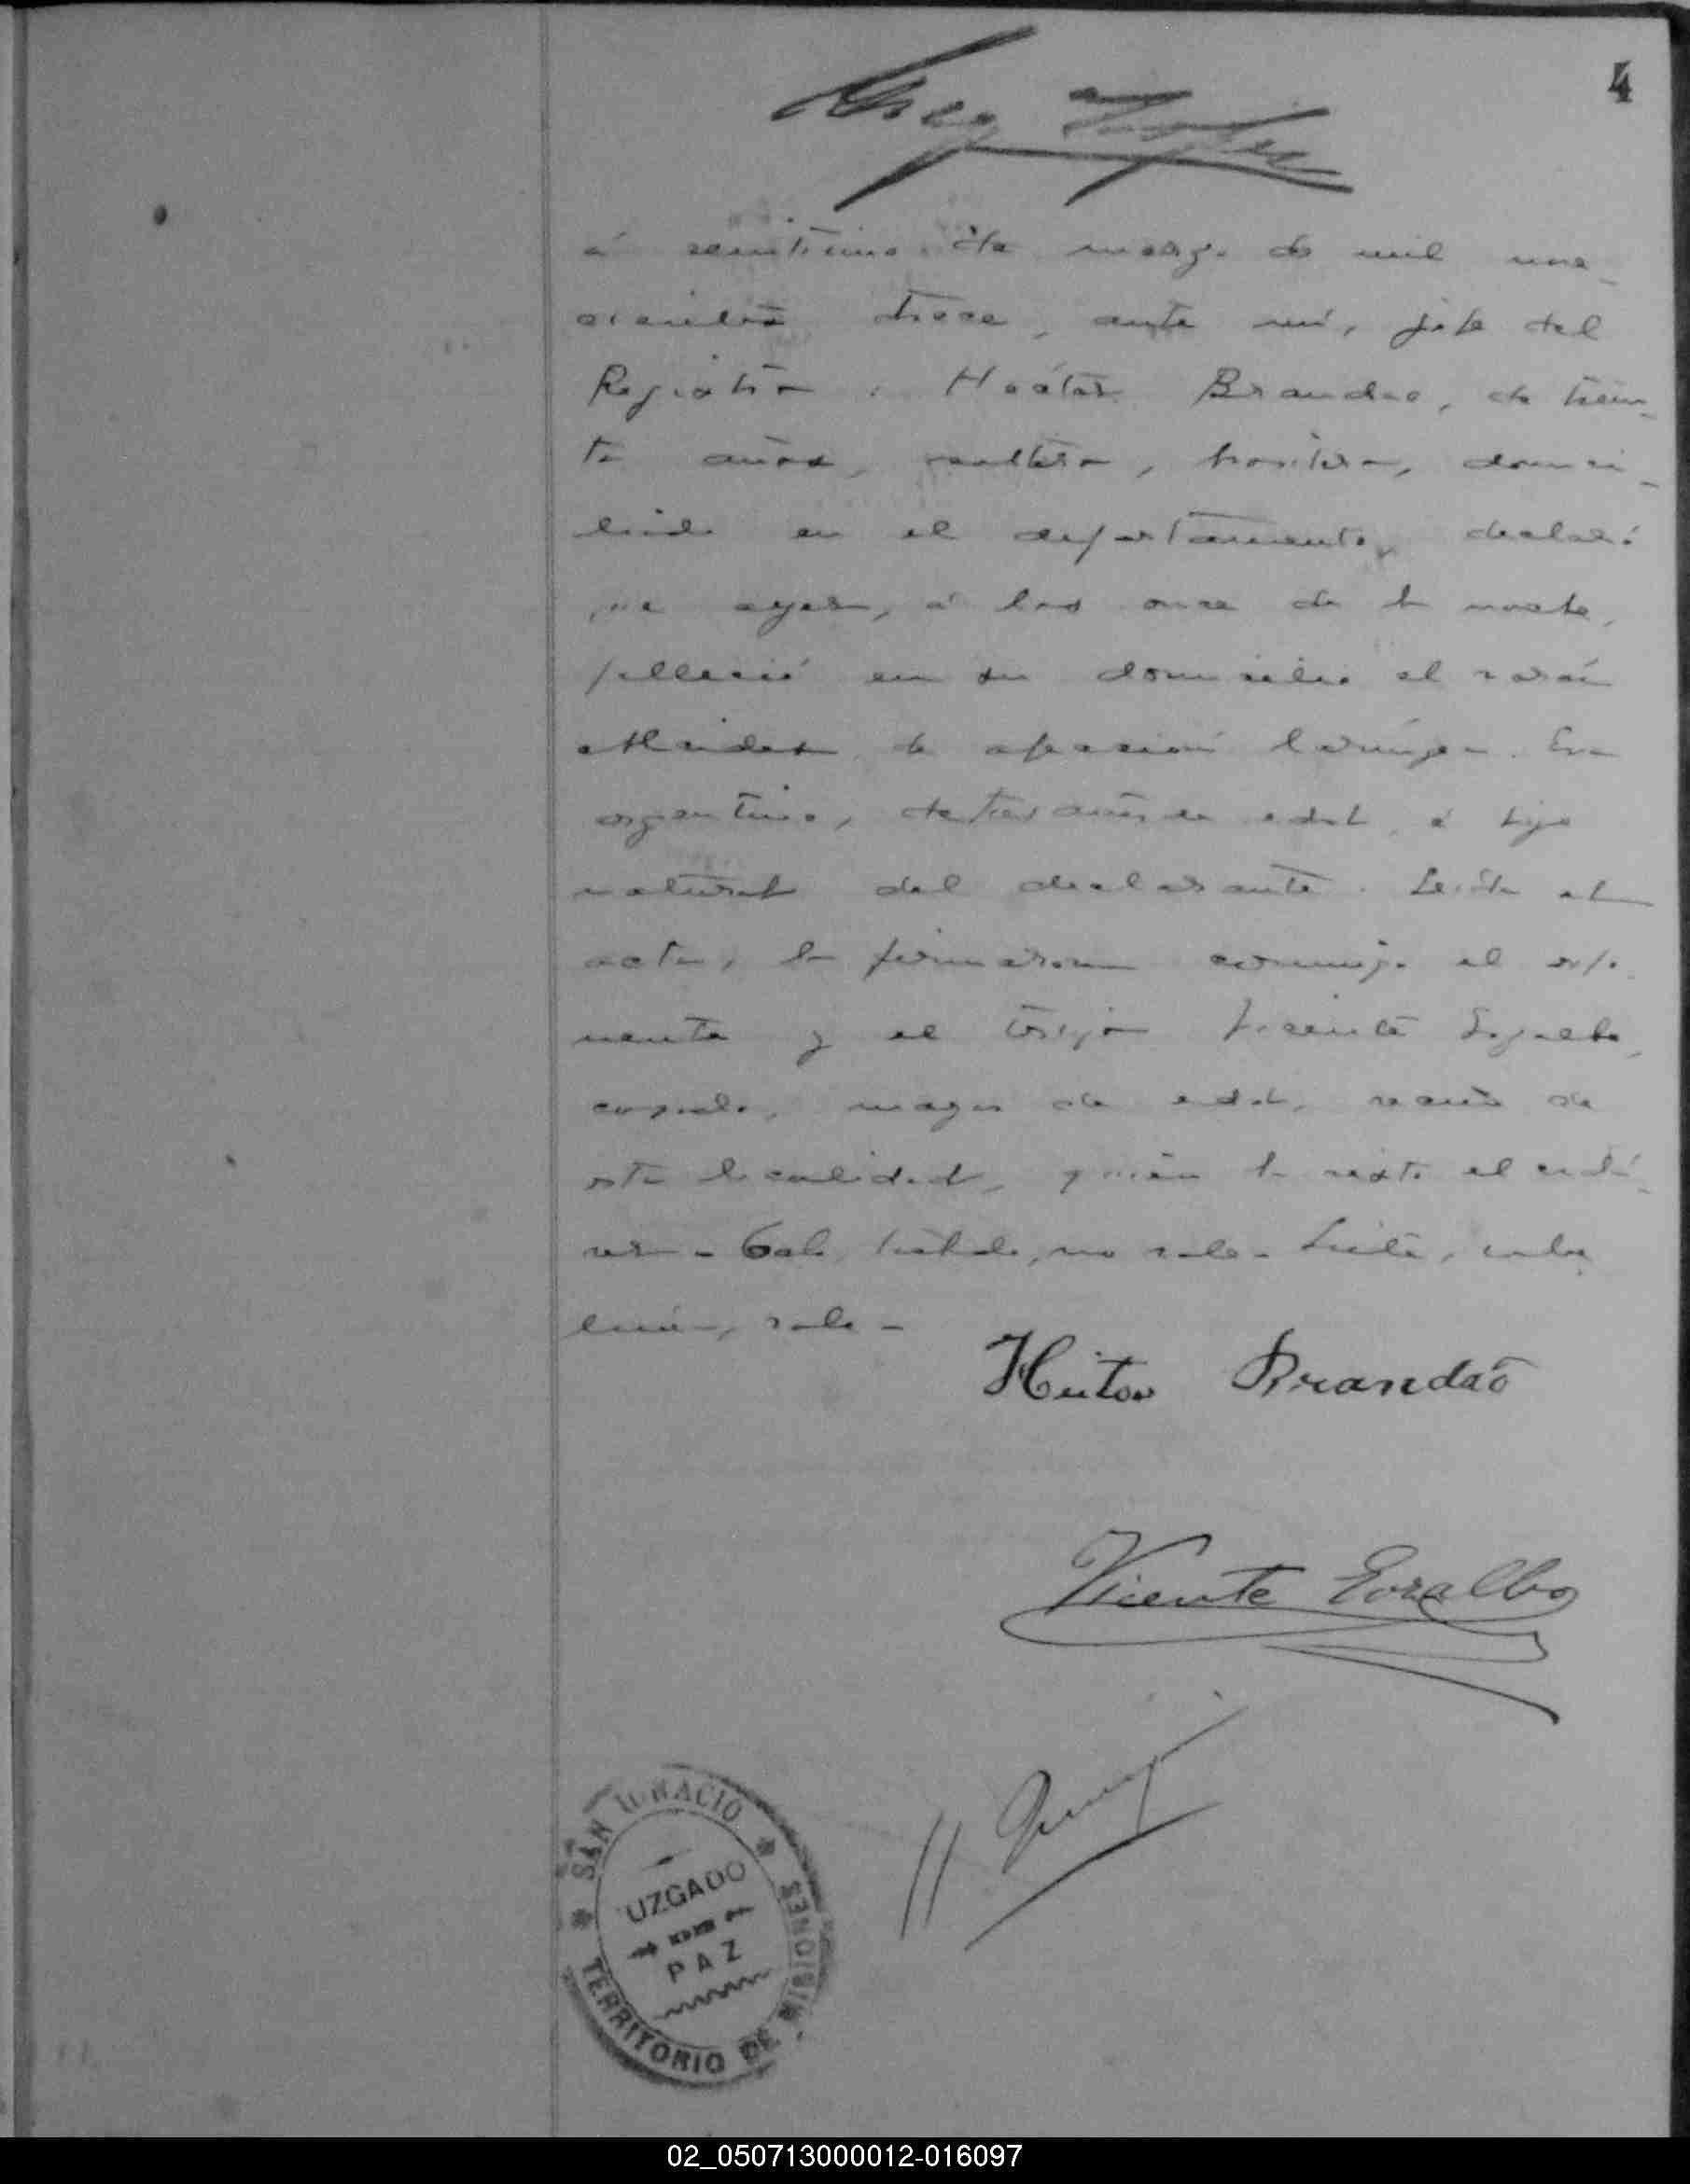 4
á veintiuno de marzo de mil nove-
cientos trece, ante mí, jefe del
Registro: Hoétor Brandao, de trein-
ta años, soltero, domici-
liado en el departamento, declaró
que ayer, á las once de la noche,
falleció en su domicilio el varón
de afección laríngea. Era
argentino, de tres años de edad, é hijo
natural del declarante. Leída el
acta, la firmaron conmigo el expo-
nente y el testigo Vicente Gozalbo,
casado, mayor de edad, vecino de
esta localidad, quién ha visto el cadá-
ver - tachado, no vale - entre
línea, vale -
Heitor Brandaõ
Vicente Gozalbo
SAN IGNACIO
UZGADO
PAZ
TERRITORIO DE MISIONES
02_050713000012-016097